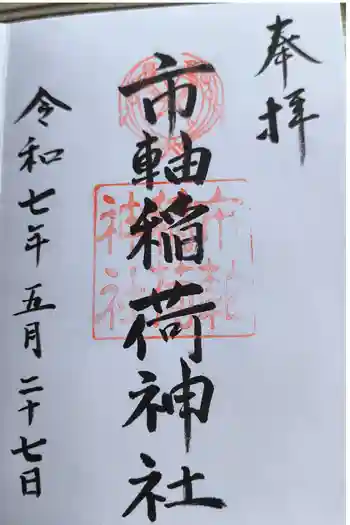 奉拝
市軸稲荷神社
令和七年五月二十七日